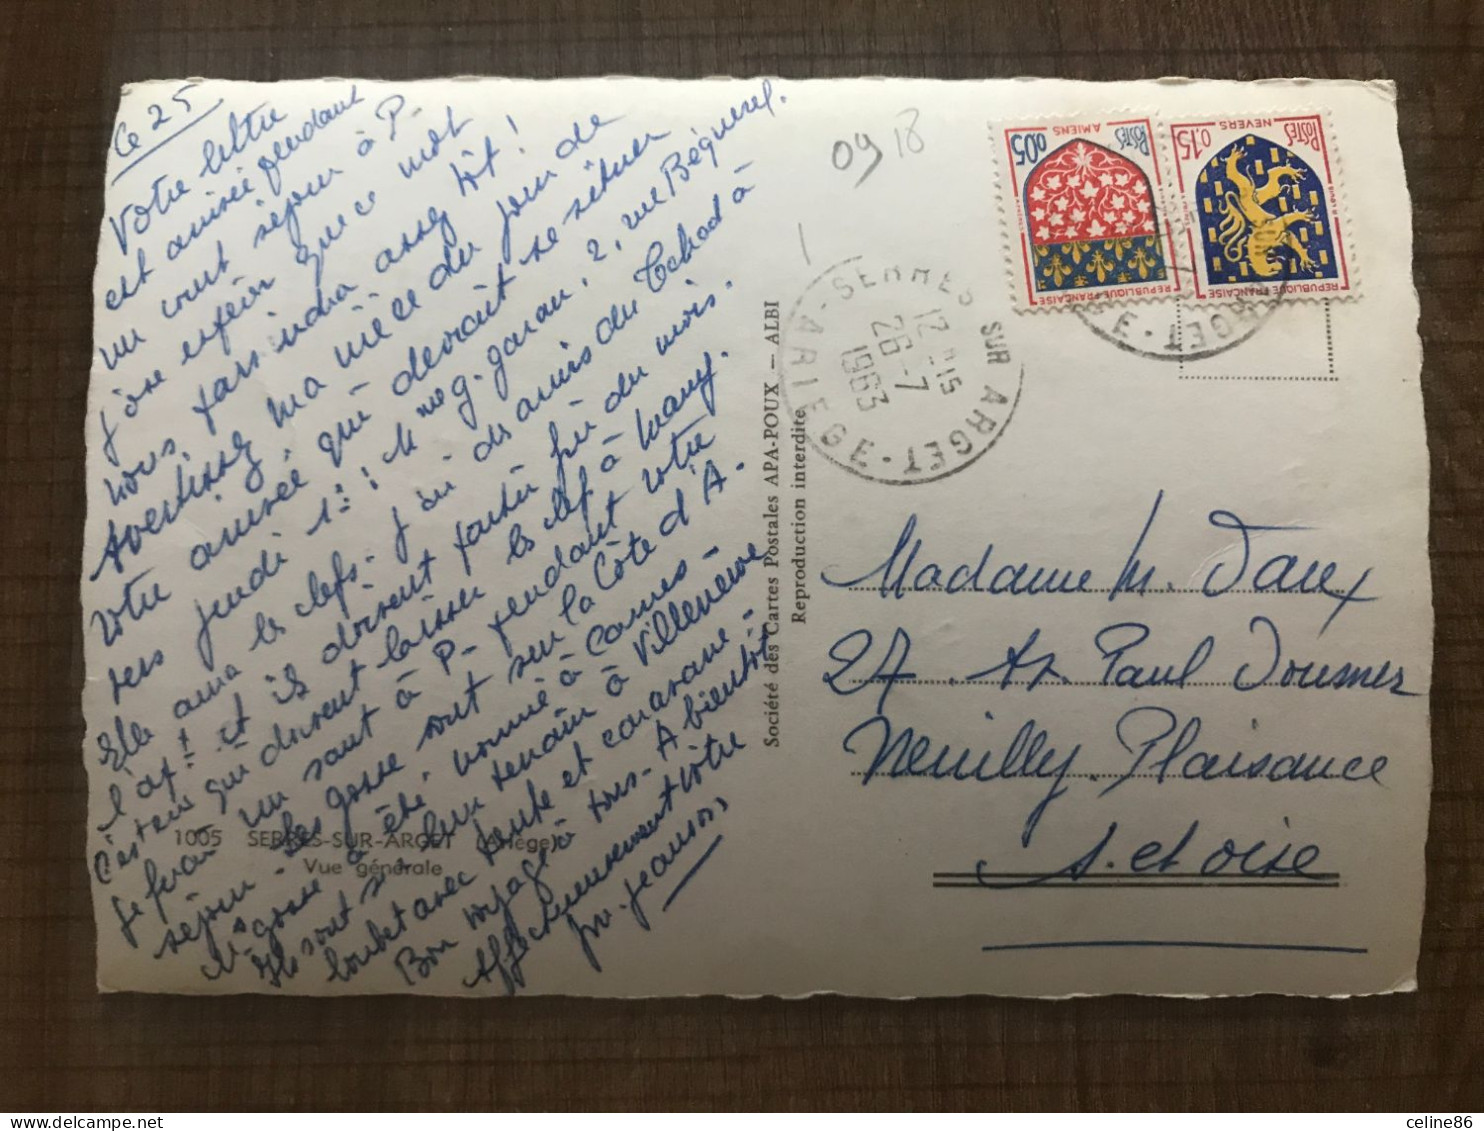 Ce 25
Votre lettre
est arrivée pendant
un court séjour à P-
J'ose espérer que ce mot
vous parviendra assez tôt !
Avertissez ma mère du jour de
votre arrivée, qui devrait se situer
vers jeudi 1er : 2, rue Béquerel.
Elle aura les clefs. J'ai des amis du Tchad à
l'apt et ils doivent partir fin du mois.
C'est eux qui doivent laisser les clefs à Mamy.
Je ferai un saut à P- pendant votre
séjour. Les gosse sont sur la Côte d'A.
Ils sont à
qui tenain à Villeneuve
Loubet avec tente et caravane -
Bon voyage à tous - A bientôt
Affectueusement vôtre
1005 SERRES-SUR-ARGET (Ariège)
Vue générale
Société des Cartes Postales APA-POUX — ALBI
Reproduction interdite
09 18
SERRES SUR ARGET - ARIEGE
12 H15
26-7
1963
RÉPUBLIQUE FRANÇAISE
POSTES
0,05
AMIENS
RÉPUBLIQUE FRANÇAISE
POSTES
0,15
NEVERS
Madame M. Daux
27. Av. Paul Doumer
Neuilly. Plaisance
S. et Oise
celine86